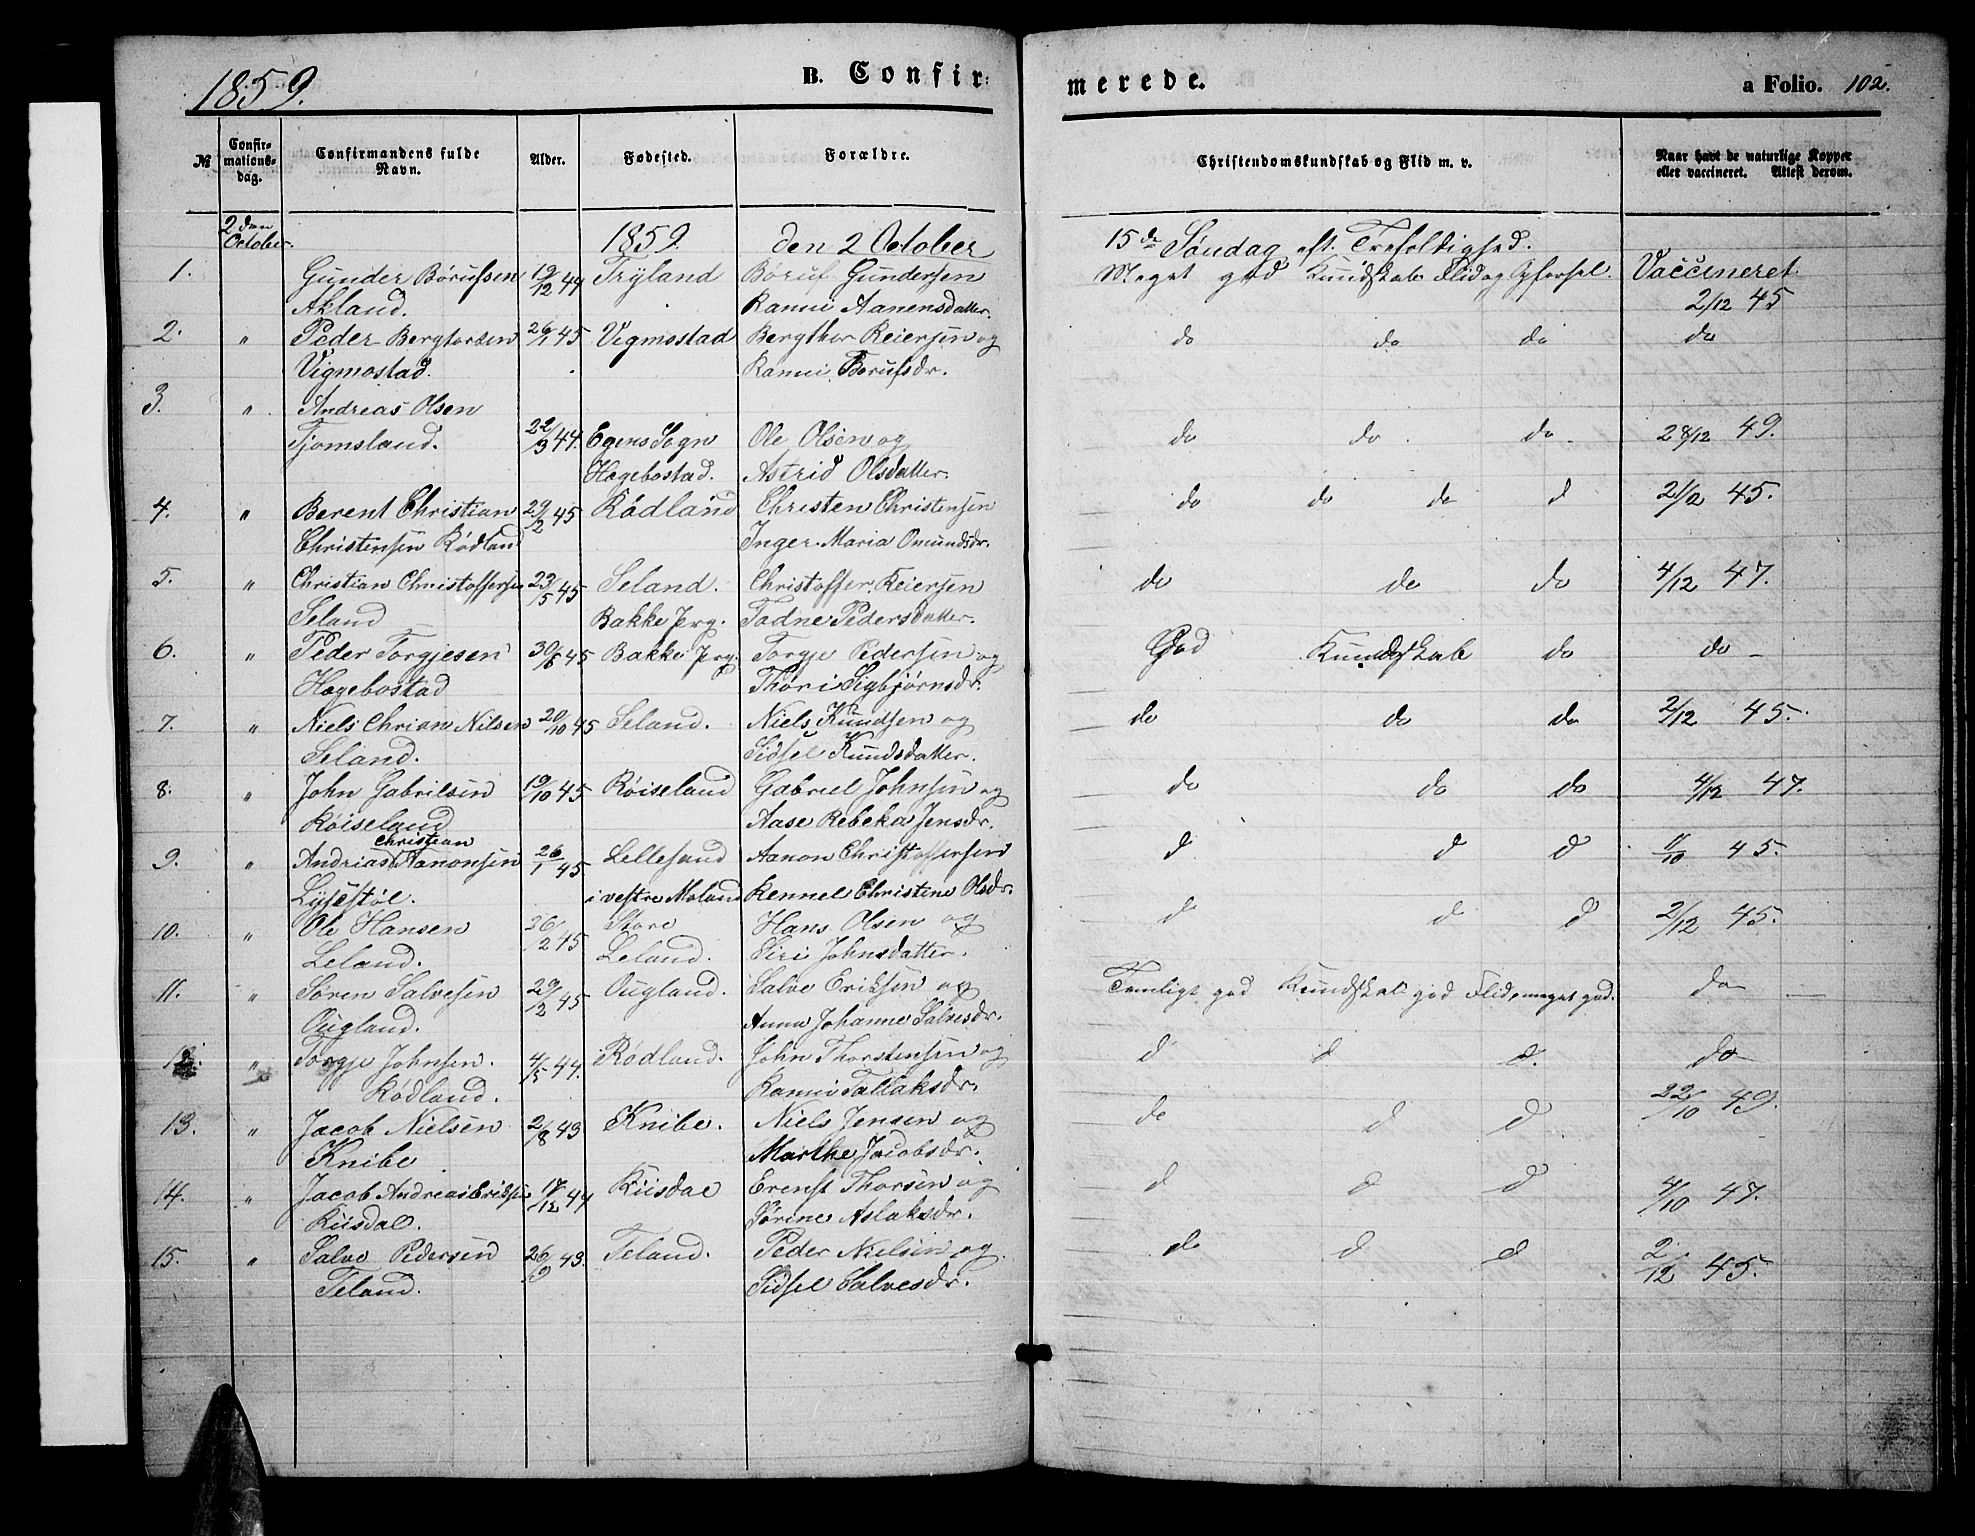 1859.
B. Confir:
merede.
a Folio. 102.
№
Confir-
mations-
dag.
Confirmandens fulde
Navn.
Alder.
Fødested.
Forældre.
Christendomskundskab og Flid m. v.
Naar havt de naturlige Kopper
eller vaccineret. Attest derom.
2den
October.
1859. den 2 October
15de Søndag eft. Trefoldighed.
1. Gunder Børufsen 19/12 44 Tryland Børuf Gundersen Meget god Kundskab Flid og Opførsel. Vaccineret
Akland. Ranni Aanensdatter. 2/12 45
2. " Peder Bergtorsen 26/1 45 Vigmostad Bergthor Reiersen og do do do do
Vigmostad. Ranni Børufsdr.
3. " Andreas Olsen
Tjomsland. 22/9 44. Egens Sogn Ole Olsen og do do. do. 28/12 49.
Hægebostad. Astrid Olsdatter.
4. " Berent Christian 29/2 45 Rödland Christen Christensen do do do d 2/12 45.
Christensen Rödland Inger Maria Omundsdr.
5. " Christian Christoffersen 23/5 45 Seland. Christoffer Reiersen do do do 4/12 47.
Seland Bakke Prg. Tadne Pedersdatter.
6. " Peder Torgjesen 30/5 45 Bakke Prg. Torgje Pedersen og God Kundskab do do
Hægebostad Thøri Sigbjørnsdr.
7. " Niels Chrian Nilsen 20/10 45 Seland. Niels Knudsen og do do do 2/12 45.
Seland. Sidsel Knudsdatter.
8. " John Gabrilsen 19/10 45 Röiseland Gabriel Johnsen og do do do 4/12 47.
Röiseland Aase Rebeka Jensdr.
Christian
9. " Andrias Aanonsen 26/1 45 Lellesand Aanon Christoffersen d d d 11/10 45.
Lysestöl. i vestre Moland Kennel Christine Olsdr.
10. " Ole Hansen 26/2 45 Store Hans Olsen og d d d 2/12 45.
Leland. Leland. Siri Johnsdatter.
11. " Søren Salvesen 29/2 45 Ougland. Salve Eriksen og Temligt god Kundskab god Flid meget god. do
Ougland. Anna Johanne Salvesdr.
12. " Torgje Johnsen. 4/5 44. Rödland. John Thorstensen og d d d. do
Rödland. Ranni Tallaksdr.
13. " Jacob Nielsen 2/8 43 Knibe. Niels Jensen og do d d 22/10 49.
Knibe Marthe Jacobsdr.
14. " Jacob Andreas 17/12 44 Kiisdal Erenst Thorsen og d d d 4/10 47.
Kiisdal. Sörine Aslaksdr.
15. " Salve Pedersen 26/9 43. Teland. Peder Nielsen og do d d 2/12 45.
Teland. Sidsel Salvesdr.